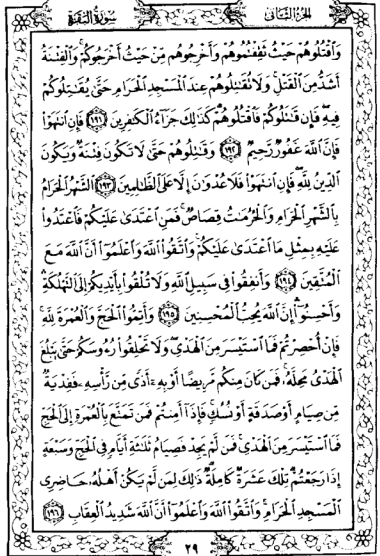 الجزء الثاني
سورة البقرة
وَاقْتُلُوهُمْ حَيْثُ ثَقِفْتُمُوهُمْ وَأَخْرِجُوهُم مِّنْ حَيْثُ أَخْرَجُوكُمْ وَالْفِتْنَةُ
أَشَدُّ مِنَ الْقَتْلِ وَلَا تُقَاتِلُوهُمْ عِندَ الْمَسْجِدِ الْحَرَامِ حَتَّى يُقَاتِلُوكُمْ
فِيهِ فَإِن قَاتَلُوكُمْ فَاقْتُلُوهُمْ كَذَلِكَ جَزَاءُ الْكَافِرِينَ ١٩١ فَإِنِ انتَهَوْا
فَإِنَّ اللَّهَ غَفُورٌ رَّحِيمٌ ١٩٢ وَقَاتِلُوهُمْ حَتَّى لَا تَكُونَ فِتْنَةٌ وَيَكُونَ
الدِّينُ لِلَّهِ فَإِنِ انتَهَوْا فَلَا عُدْوَانَ إِلَّا عَلَى الظَّالِمِينَ ١٩٣ الشَّهْرُ الْحَرَامُ
بِالشَّهْرِ الْحَرَامِ وَالْحُرُمَاتُ قِصَاصٌ فَمَنِ اعْتَدَى عَلَيْكُمْ فَاعْتَدُوا
عَلَيْهِ بِمِثْلِ مَا اعْتَدَى عَلَيْكُمْ وَاتَّقُوا اللَّهَ وَاعْلَمُوا أَنَّ اللَّهَ مَعَ
الْمُتَّقِينَ ١٩٤ وَأَنفِقُوا فِي سَبِيلِ اللَّهِ وَلَا تُلْقُوا بِأَيْدِيكُمْ إِلَى التَّهْلُكَةِ
وَأَحْسِنُوا إِنَّ اللَّهَ يُحِبُّ الْمُحْسِنِينَ ١٩٥ وَأَتِمُّوا الْحَجَّ وَالْعُمْرَةَ لِلَّهِ
فَإِنْ أُحْصِرْتُمْ فَمَا اسْتَيْسَرَ مِنَ الْهَدْيِ وَلَا تَحْلِقُوا رُءُوسَكُمْ حَتَّى يَبْلُغَ
الْهَدْيُ مَحِلَّهُ فَمَن كَانَ مِنكُم مَّرِيضًا أَوْ بِهِ أَذًى مِّن رَّأْسِهِ فَفِدْيَةٌ
مِّن صِيَامٍ أَوْ صَدَقَةٍ أَوْ نُسُكٍ فَإِذَا أَمِنتُمْ فَمَن تَمَتَّعَ بِالْعُمْرَةِ إِلَى الْحَجِّ
فَمَا اسْتَيْسَرَ مِنَ الْهَدْيِ فَمَن لَّمْ يَجِدْ فَصِيَامُ ثَلَاثَةِ أَيَّامٍ فِي الْحَجِّ وَسَبْعَةٍ
إِذَا رَجَعْتُمْ تِلْكَ عَشَرَةٌ كَامِلَةٌ ذَلِكَ لِمَن لَّمْ يَكُنْ أَهْلُهُ حَاضِرِي
الْمَسْجِدِ الْحَرَامِ وَاتَّقُوا اللَّهَ وَاعْلَمُوا أَنَّ اللَّهَ شَدِيدُ الْعِقَابِ ١٩٦
٢٩